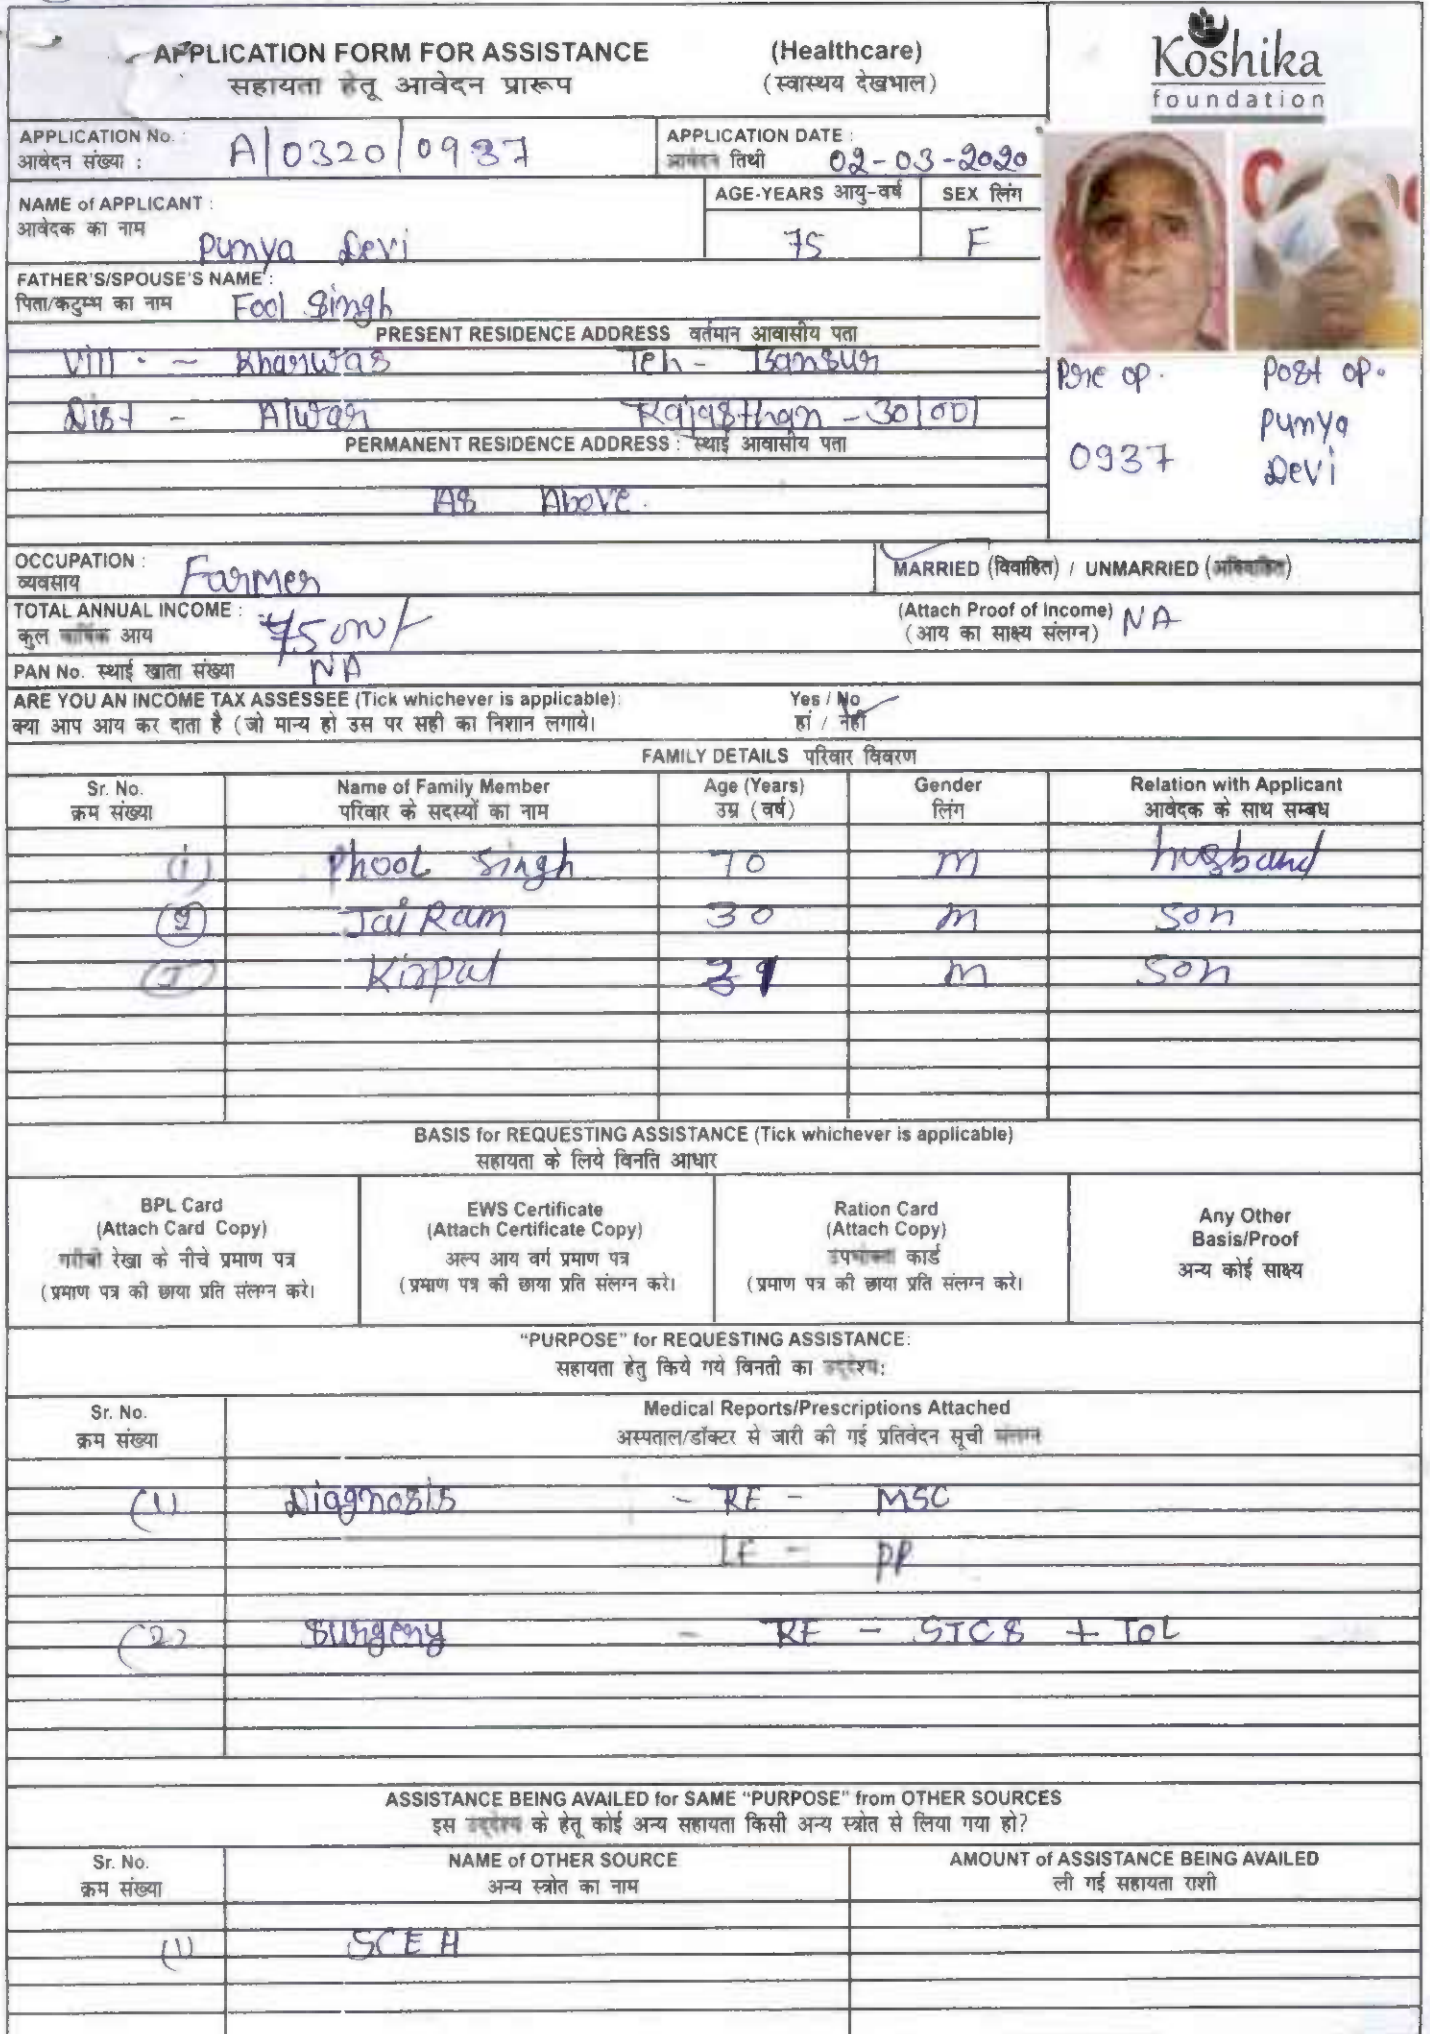 APPLICATION FORM FOR ASSISTANCE (Healthcare)
सहायता हेतू आवेदन प्रारूप (स्वास्थय देखभाल)
Koshika
foundation
APPLICATION No. :
आवेदन संख्या : A/0320/0937
APPLICATION DATE :
आवेदन तिथी 02-03-2020
NAME of APPLICANT :
आवेदक का नाम Punya Devi
AGE-YEARS आयु-वर्ष SEX लिंग
75 F
FATHER'S/SPOUSE'S NAME :
पिता/कटुम्भ का नाम Fool Singh
PRESENT RESIDENCE ADDRESS वर्तमान आवासीय पता
Vill - Kharwas Teh - Bansur
Dist - Alwar Rajasthan - 301001
PERMANENT RESIDENCE ADDRESS : स्थाई आवासीय पता
As Above.
Pre op. Post op.
0937 Punya
Devi
OCCUPATION :
व्यवसाय Farmer
MARRIED (विवाहित) / UNMARRIED (अविवाहित)
TOTAL ANNUAL INCOME :
कुल वार्षिक आय
(Attach Proof of Income) NA
(आय का साक्ष्य संलग्न)
PAN No. स्थाई खाता संख्या NA
ARE YOU AN INCOME TAX ASSESSEE (Tick whichever is applicable): Yes / No
क्या आप आय कर दाता है (जो मान्य हो उस पर सही का निशान लगाये। हां / नहीं
FAMILY DETAILS परिवार विवरण
Sr. No. Name of Family Member Age (Years) Gender Relation with Applicant
क्रम संख्या परिवार के सदस्यों का नाम उम्र (वर्ष) लिंग आवेदक के साथ सम्बध
(1) Phool Singh 70 M husband
(2) Jai Ram 30 M Son
Kirpal M Son
BASIS for REQUESTING ASSISTANCE (Tick whichever is applicable)
सहायता के लिये विनति आधार
BPL Card
(Attach Card Copy)
गरीबी रेखा के नीचे प्रमाण पत्र
(प्रमाण पत्र की छाया प्रति संलग्न करे।
EWS Certificate
(Attach Certificate Copy)
अल्प आय वर्ग प्रमाण पत्र
(प्रमाण पत्र की छाया प्रति संलग्न करे।
Ration Card
(Attach Copy)
उपभोक्ता कार्ड
(प्रमाण पत्र की छाया प्रति संलग्न करे।
Any Other
Basis/Proof
अन्य कोई साक्ष्य
"PURPOSE" for REQUESTING ASSISTANCE:
सहायता हेतु किये गये विनती का उद्देश्य:
Sr. No. Medical Reports/Prescriptions Attached
क्रम संख्या अस्पताल/डॉक्टर से जारी की गई प्रतिवेदन सूची संलग्न
(1) Diagnosis - RE - MSC
LE - PP
(2) Surgery - RE - SICS + IOL
ASSISTANCE BEING AVAILED for SAME "PURPOSE" from OTHER SOURCES
इस उद्देश्य के हेतू कोई अन्य सहायता किसी अन्य स्त्रोत से लिया गया हो?
Sr. No. NAME of OTHER SOURCE AMOUNT of ASSISTANCE BEING AVAILED
क्रम संख्या अन्य स्त्रोत का नाम ली गई सहायता राशी
(1) SCEH